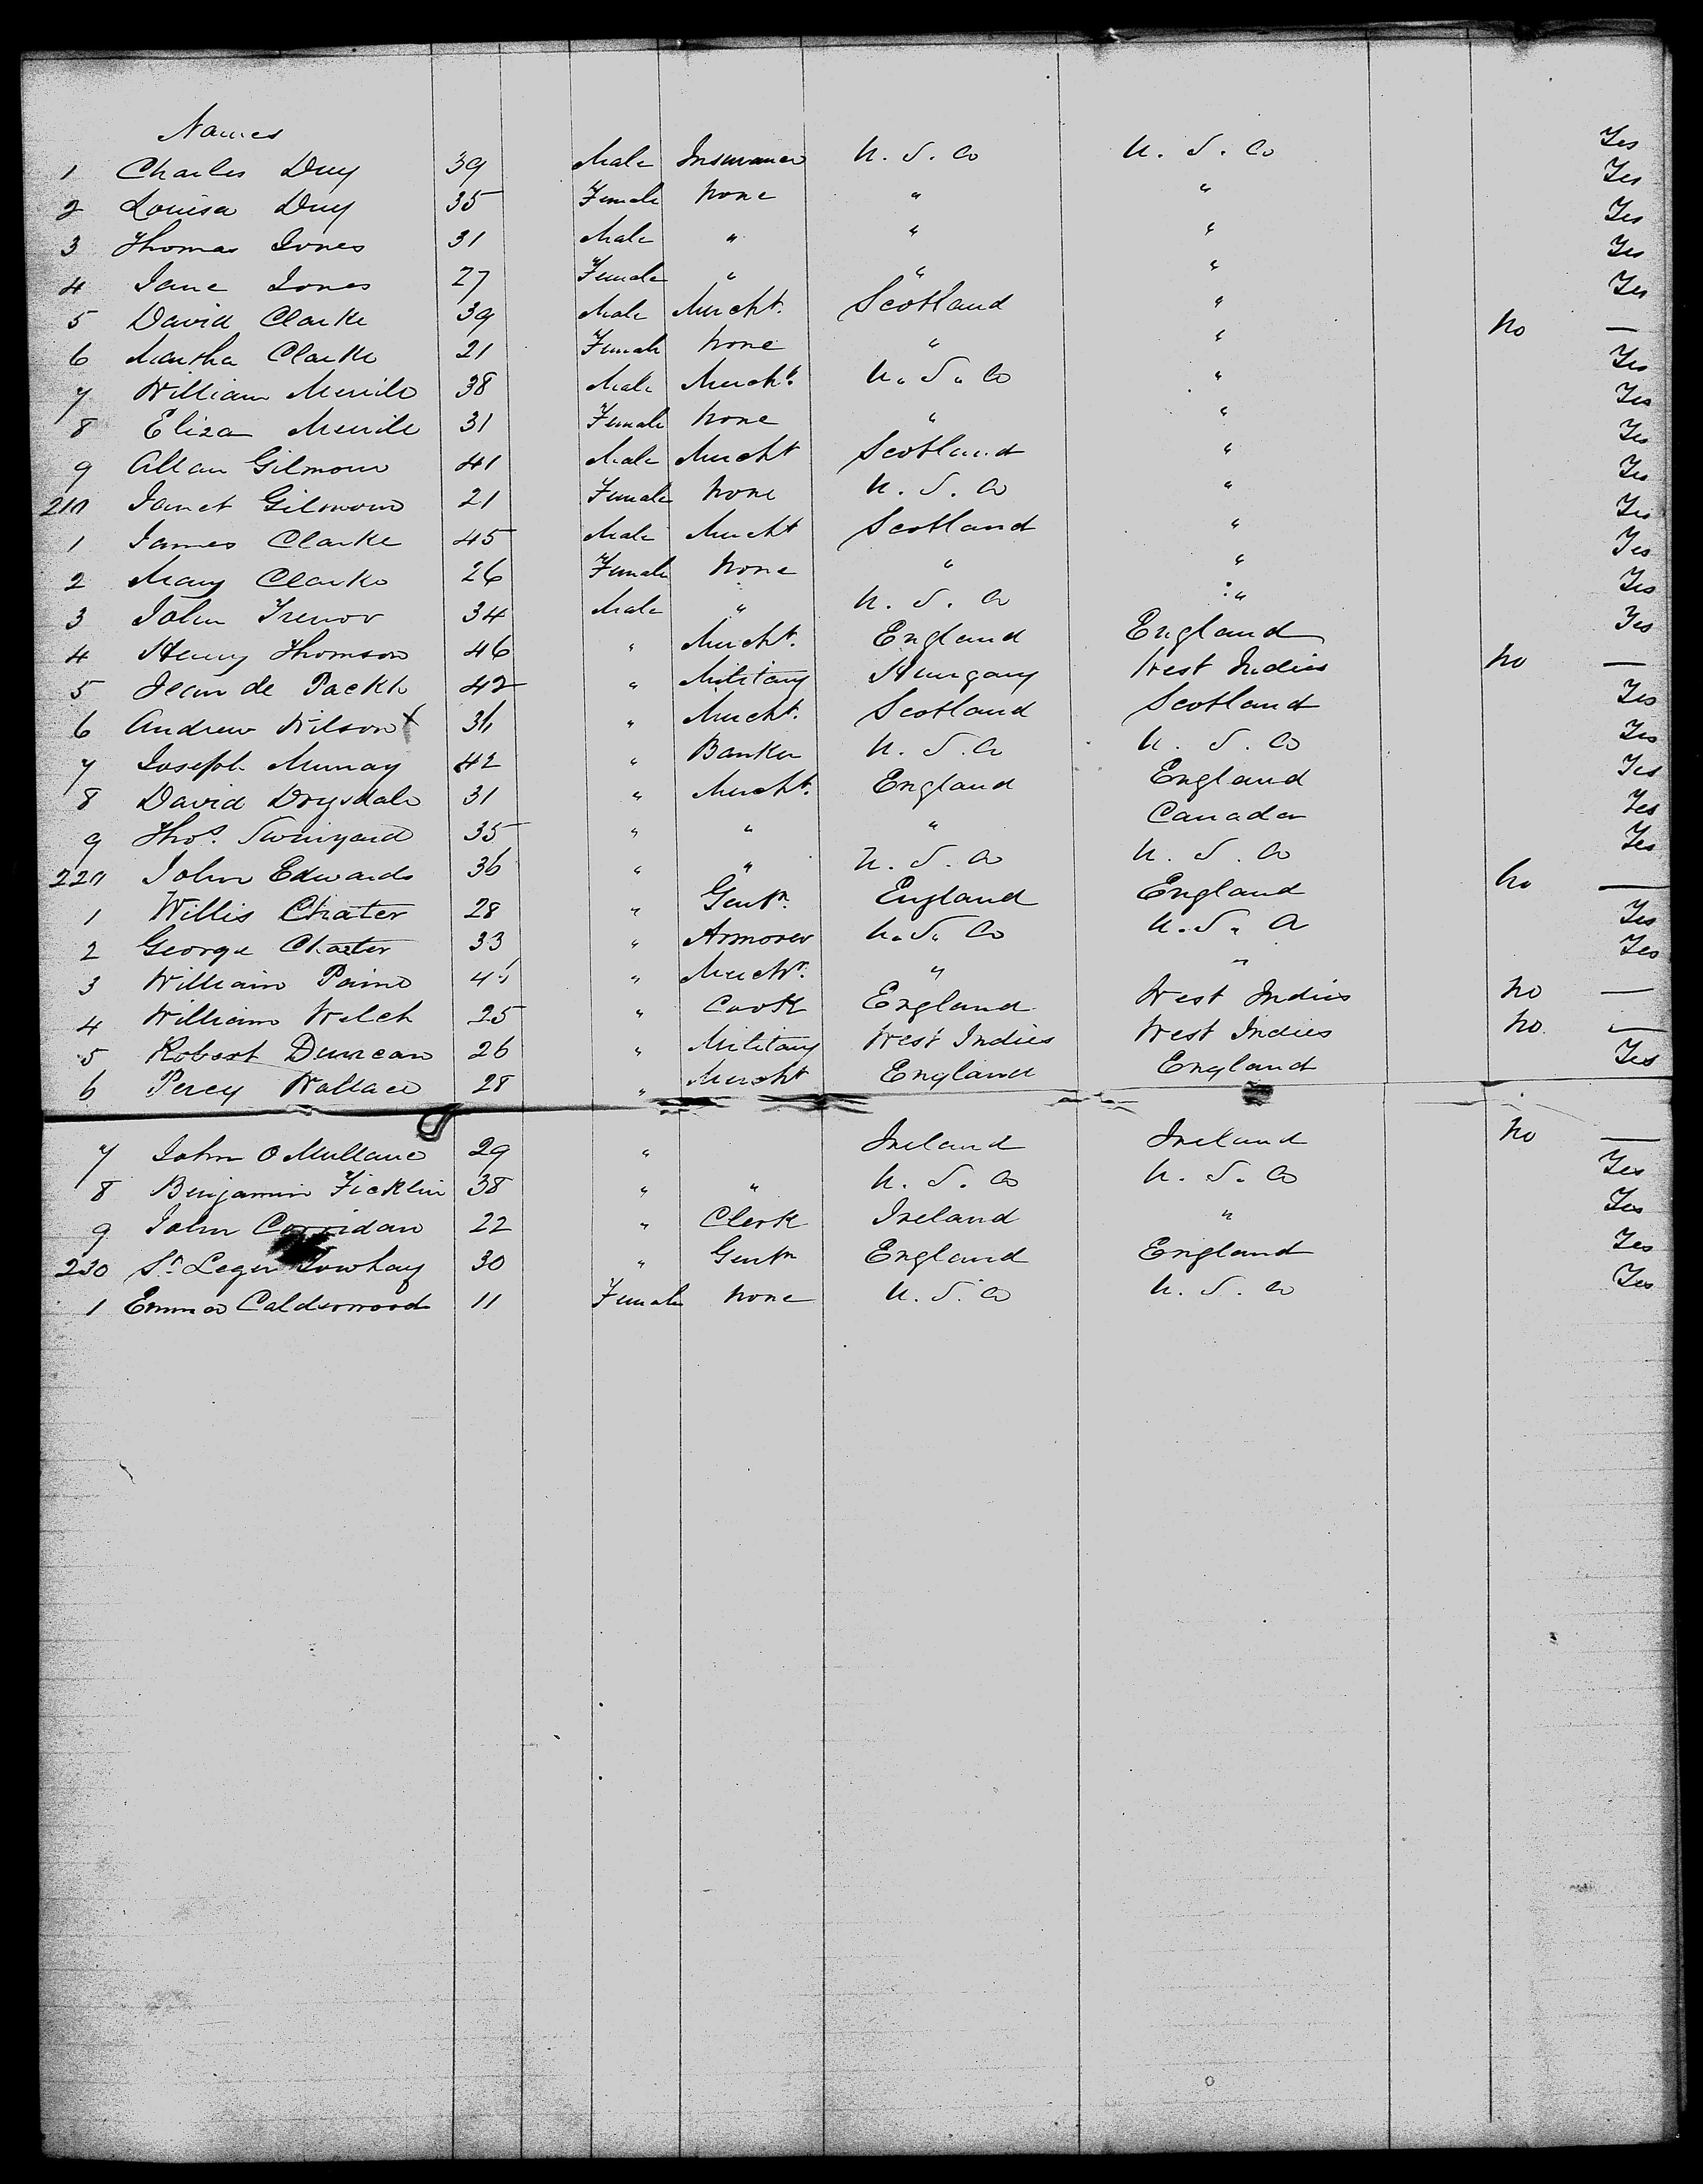 Names
1 Charles Duy 39 Male Insurance U. S. A Yes
2 Louisa Duy 35 Female None " " Yes
3 Thomas Jones 31 Male " " " Yes
4 Jane Jones 27 Female " " " Yes
5 David Clarke 39 Male Mercht. Scotland " Yes
6 Martha Clarke 21 Female None " " No —
7 William Merrill 38 Male Mercht. U. S. A " Yes
8 Eliza Merrill 31 Female None " " Yes
9 Allan Gilmour 41 Male Mercht Scotland " Yes
210 Janet Gilmour 21 Female None U. S. A " Yes
1 James Clarke 45 Male Mercht Scotland " Yes
2 Mary Clarke 26 Female None " " Yes
3 John Trenor 34 Male " U. S. A " Yes
4 Henry Thomson 46 " Mercht. England England Yes
5 Jean de Packh 42 " Military Hungary West Indies No —
6 Andrew Wilson x 36 " Mercht. Scotland Scotland Yes
7 Joseph Murray 42 " Banker U. S. A U. S. A Yes
8 David Drysdale 31 " Mercht. England England Yes
9 Thos. Swinyard 35 " " " Canada Yes
220 John Edwards 36 " " U. S. A U. S. A Yes
1 Willis Chater 28 " Gentn. England England No —
2 George Chater 33 " Armorer U. S. A U. S. A Yes
3 William Paine " Mercht. " " Yes
4 William Welch 25 " Cook England West Indies No —
5 Robert Duncan 26 " Military West Indies West Indies No. —
6 Percy Wallace 28 " Mercht England England Yes
7 John O Mullane 29 " Ireland Ireland No —
8 Benjamin Ficklin 38 " " U. S. A U. S. A Yes
9 John Corridan 22 " Clerk Ireland " Yes
230 St. Leger 30 " Gentn England England Yes
1 Emma Calderwood 11 Female None U. S. A U. S. A Yes